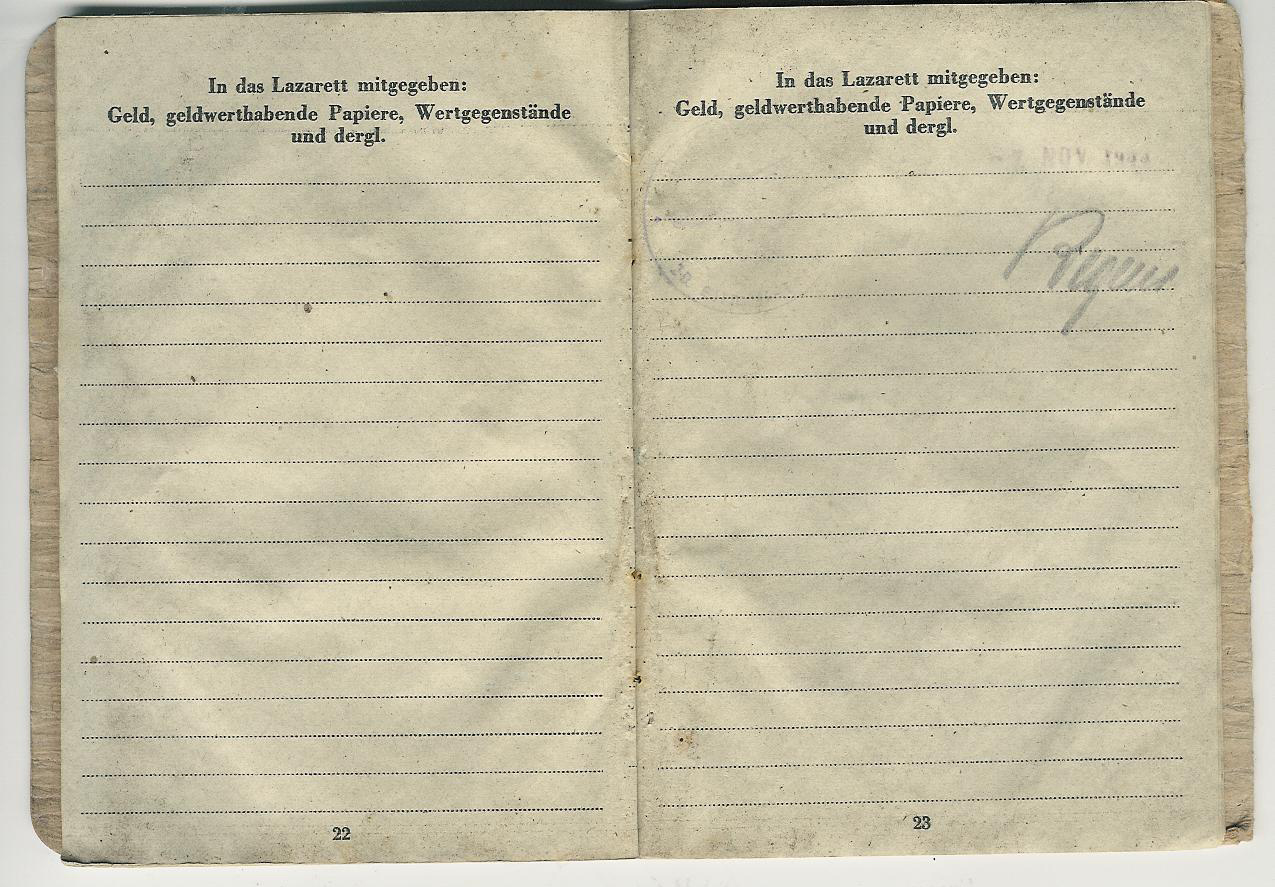 In das Lazarett mitgegeben:
Geld, geldwerthabende Papiere, Wertgegenstände
und dergl.
22
In das Lazarett mitgegeben:
Geld, geldwerthabende Papiere, Wertgegenstände
und dergl.
23